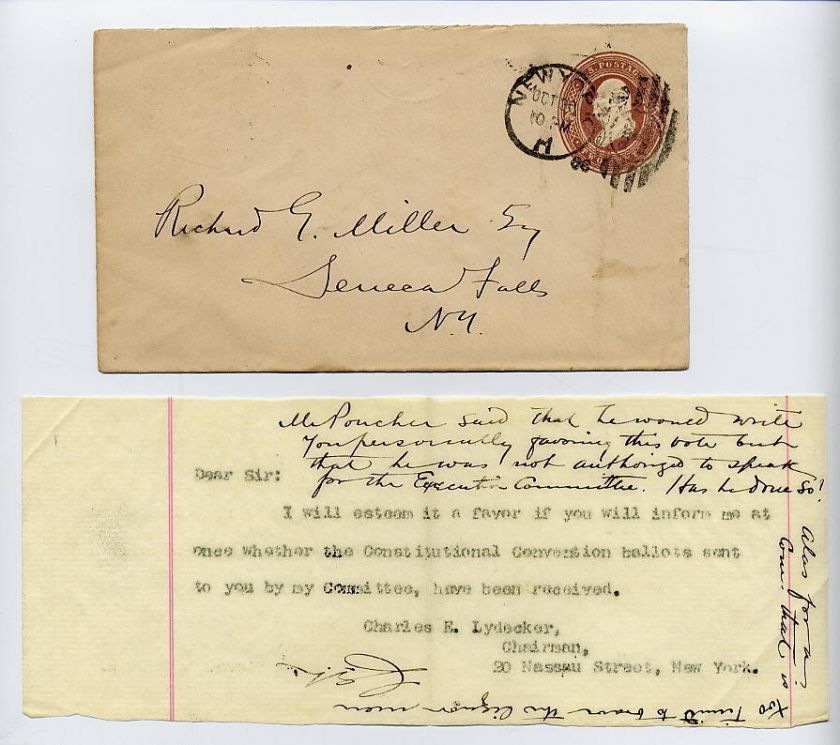 U.S. POSTAGE
NEW YO
OCT
10 PM
86
H
Richard G. Miller Esq
Seneca Falls
N.Y.
Mr Poucher said that he would write
you personally favoring this vote but
that he was not authorized to speak
for the Executive Committee. Has he done so?
Dear Sir:
I will esteem it a favor if you will inform me at
once whether the Constitutional Convention ballots sent
to you by my Committee, have been received.
Charles E. Lydecker,
Chairman,
20 Nassau Street, New York.
Alas for a
Com. that is
too timid to brave the liquor men